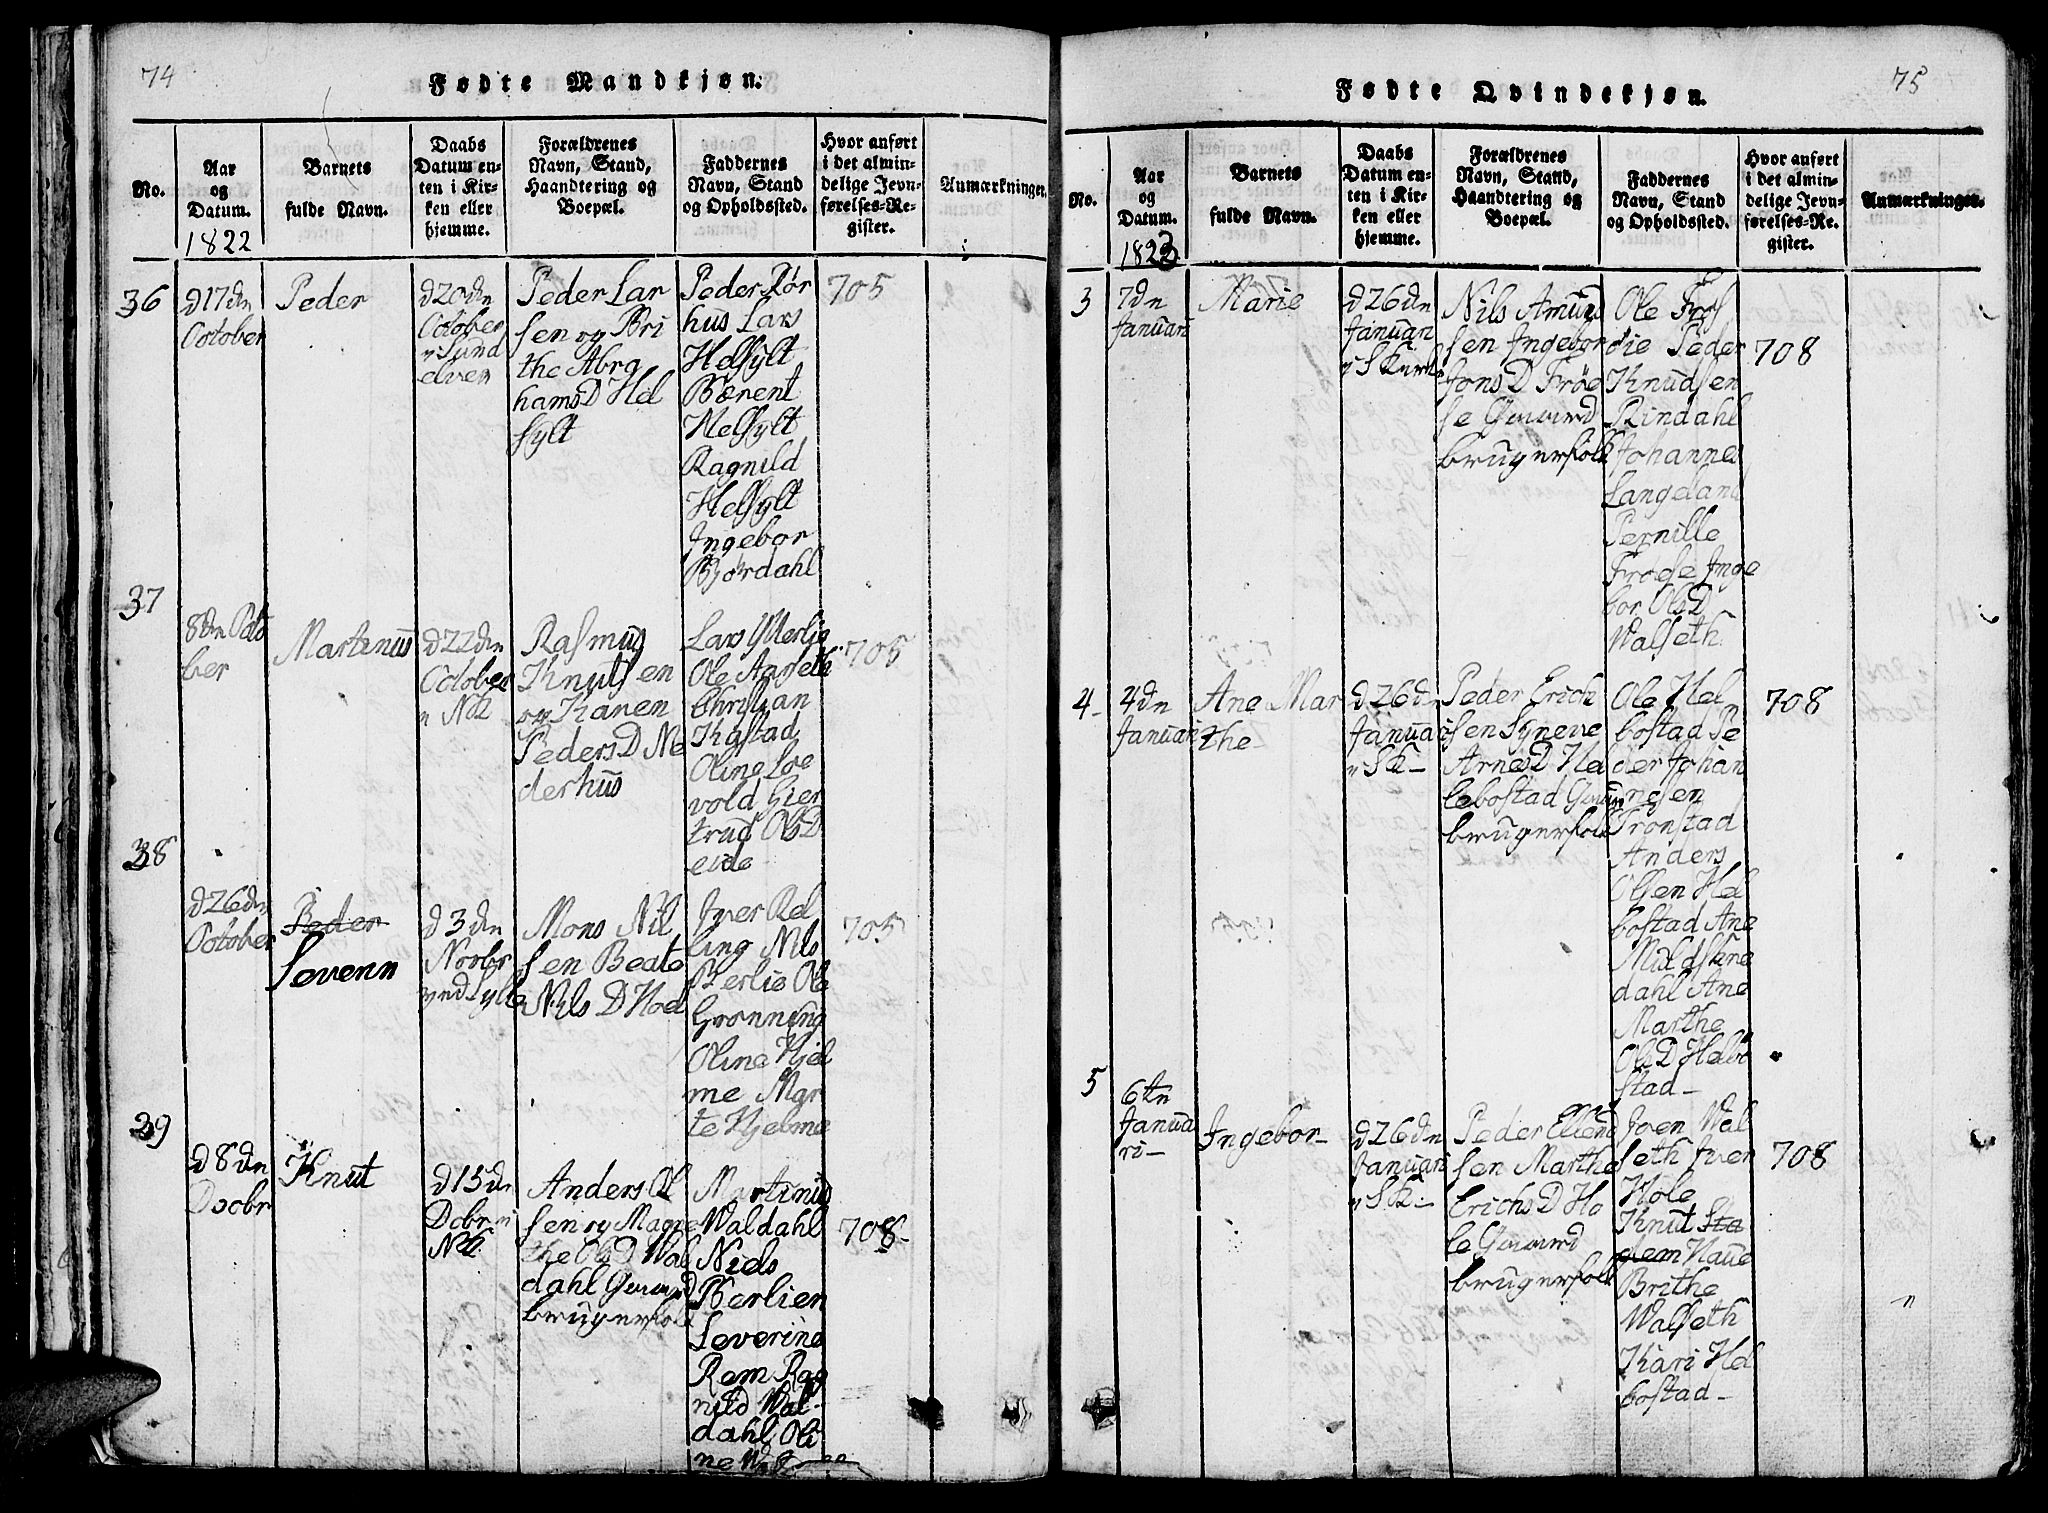 74
Fødte Mandkjøn.
No.
Aar
og
Datum.
1822
Barnets
fulde Navn.
Daabs
Datum en-
ten i Kir-
ken eller
hjemme.
Forældrenes
Navn, Stand,
Haandtering og
Boepæl.
Faddernes
Navn, Stand
og Opholdssted.
Hvor anført
i det almin-
delige Jevn-
førelses-Re-
gister.
Anmærkninger.
36
d 17dn
October
Peder
d 20dn
October
i Sund
elven
Peder Lar
sen og Bri
the Abra
hams D Hel
sylt
Peder Rør
hus Lars
Helsylt
Bærent
Helsylt
Ragnild
Helsylt
Ingebor
Bjordahl
705
37
8dn Octo
ber
Martinus
d 22dn
October
i NK
Rasmus
Knutsen
og Karen
Peders D Ne
derhus
Lars
Ole Anseth
Christian
Kastad
Oline Loe
vold Gier
trud Ols D
eide
705
38
d 26dn
October
Peder
Severin
d 3dn
Novbr
ved Sylte
Mons Nil
sen Beate
Nils D Hoel
Iver Rel
ling Nils
Berlie Ole
Grønning
Oline Hjel
me Mar
te Hjelme
705
39
d 8dn
Dcobr
Knut
d 15dn
Dcbr i
NK
Anders Ol
sen og Magre
the Ols D Wal
dahl Gaard
brugerfolk
Martinus
Waldahl
Niels
Berlien
Severine
Rem Rag
nild Wal-
dahl Oli
ne
708-
75
Fødte Qvindekjøn.
No.
Aar
og
Datum.
1823
Barnets
fulde Navn.
Daabs
Datum en-
ten i Kir-
ken eller
hjemme.
Forældrenes
Navn, Stand,
Haandtering og
Boepæl.
Faddernes
Navn, Stand
og Opholdssted.
Hvor anført
i det almin-
delige Jevn-
førelses-Re-
gister.
Anmærkninger.
3
7dn
Januari
Marie
d 26dn
Januari
i S Kirke
Nils Amund
sen Ingebor
Jons D Frøe
se Gaard
brugerfolk
Ole Frøs
die Peder
Knudsen
Rindahl
Johannes
Langeland
Pernille
Froese Inge
bor Ols D
Walseth
708
4-
4dn
Januari
Ane Mar
the-
d 26dn
Januari
i SK-
Peder Erick
sen Syneve
Arnes D He
lebostad Gaard
brugerfolk
Ole Hel
bostad Pe
der Johan
nesen
Tronstad
Anders
Olsen Hel
bostad Ane
Muldskre
dahl Ane
Marthe
Ols D Helbo
stad-
708
5
6tn
Janua
ri-
Ingebor-
d 26dn
Januari
i SK-
Peder Ellend
sen Marthe
Erichs D Ho
le Gaard
brugerfolk
Iven Wal
seth Iver
Hole
Knut Sta
dem Haue
Brithe
Walseth
Kari Hel
bostad-
708